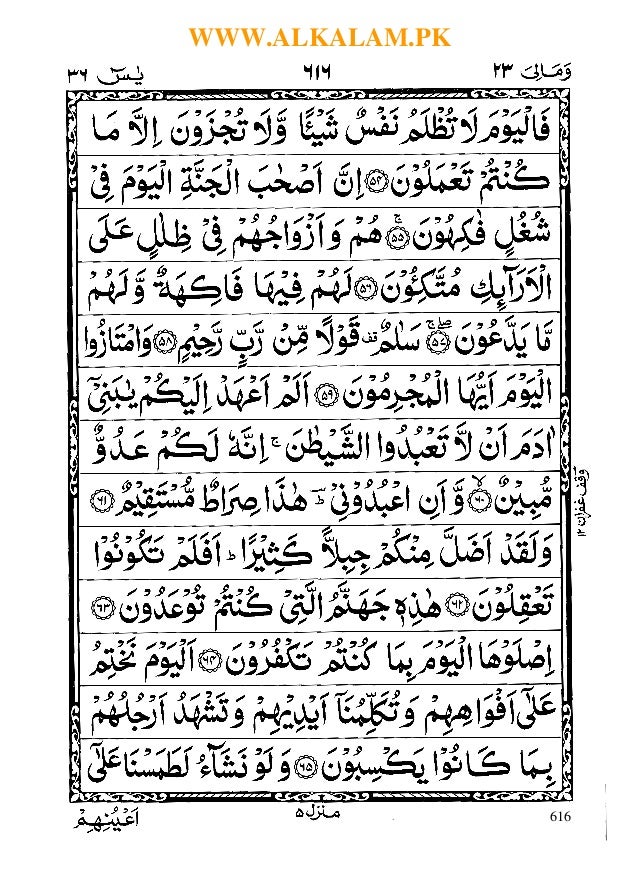 WWW.ALKALAM.PK
وَمَالِیَ ٢٣
٦١٦
یٰسٓ ٣٦
فَالْیَوْمَ لَا تُظْلَمُ نَفْسٌ شَیْـًٔا وَّلَا تُجْزَوْنَ اِلَّا مَا
كُنْتُمْ تَعْمَلُوْنَ ۝٥٤ اِنَّ اَصْحٰبَ الْجَنَّةِ الْیَوْمَ فِیْ
شُغُلٍ فٰكِهُوْنَ ۝٥٥ۚ هُمْ وَ اَزْوَاجُهُمْ فِیْ ظِلٰلٍ عَلَی
الْاَرَآىِٕكِ مُتَّكِـُٔوْنَ ۝٥٦ لَهُمْ فِیْهَا فَاكِهَةٌ وَّ لَهُمْ
مَّا یَدَّعُوْنَ ۝٥٧ۚۖ سَلٰمٌ ࣞ قَوْلًا مِّنْ رَّبٍّ رَّحِیْمٍ ۝٥٨ وَامْتَازُوا
الْیَوْمَ اَیُّهَا الْمُجْرِمُوْنَ ۝٥٩ اَلَمْ اَعْهَدْ اِلَیْكُمْ یٰبَنِیْۤ
اٰدَمَ اَنْ لَّا تَعْبُدُوا الشَّیْطٰنَ ۚ اِنَّهٗ لَكُمْ عَدُوٌّ
مُّبِیْنٌ ۝٦٠ۙ وَّ اَنِ اعْبُدُوْنِیْ ؕؔ هٰذَا صِرَاطٌ مُّسْتَقِیْمٌ ۝٦١
وَلَقَدْ اَضَلَّ مِنْكُمْ جِبِلًّا كَثِیْرًا ؕ اَفَلَمْ تَكُوْنُوْا
تَعْقِلُوْنَ ۝٦٢ هٰذِهٖ جَهَنَّمُ الَّتِیْ كُنْتُمْ تُوْعَدُوْنَ ۝٦٣
اِصْلَوْهَا الْیَوْمَ بِمَا كُنْتُمْ تَكْفُرُوْنَ ۝٦٤ اَلْیَوْمَ نَخْتِمُ
عَلٰۤی اَفْوَاهِهِمْ وَ تُكَلِّمُنَاۤ اَیْدِیْهِمْ وَ تَشْهَدُ اَرْجُلُهُمْ
بِمَا كَانُوْا یَكْسِبُوْنَ ۝٦٥ وَ لَوْ نَشَآءُ لَطَمَسْنَا عَلٰۤی
وقف غفران ١٢
اَعْیُنِهِمْ
منزل ٥
616